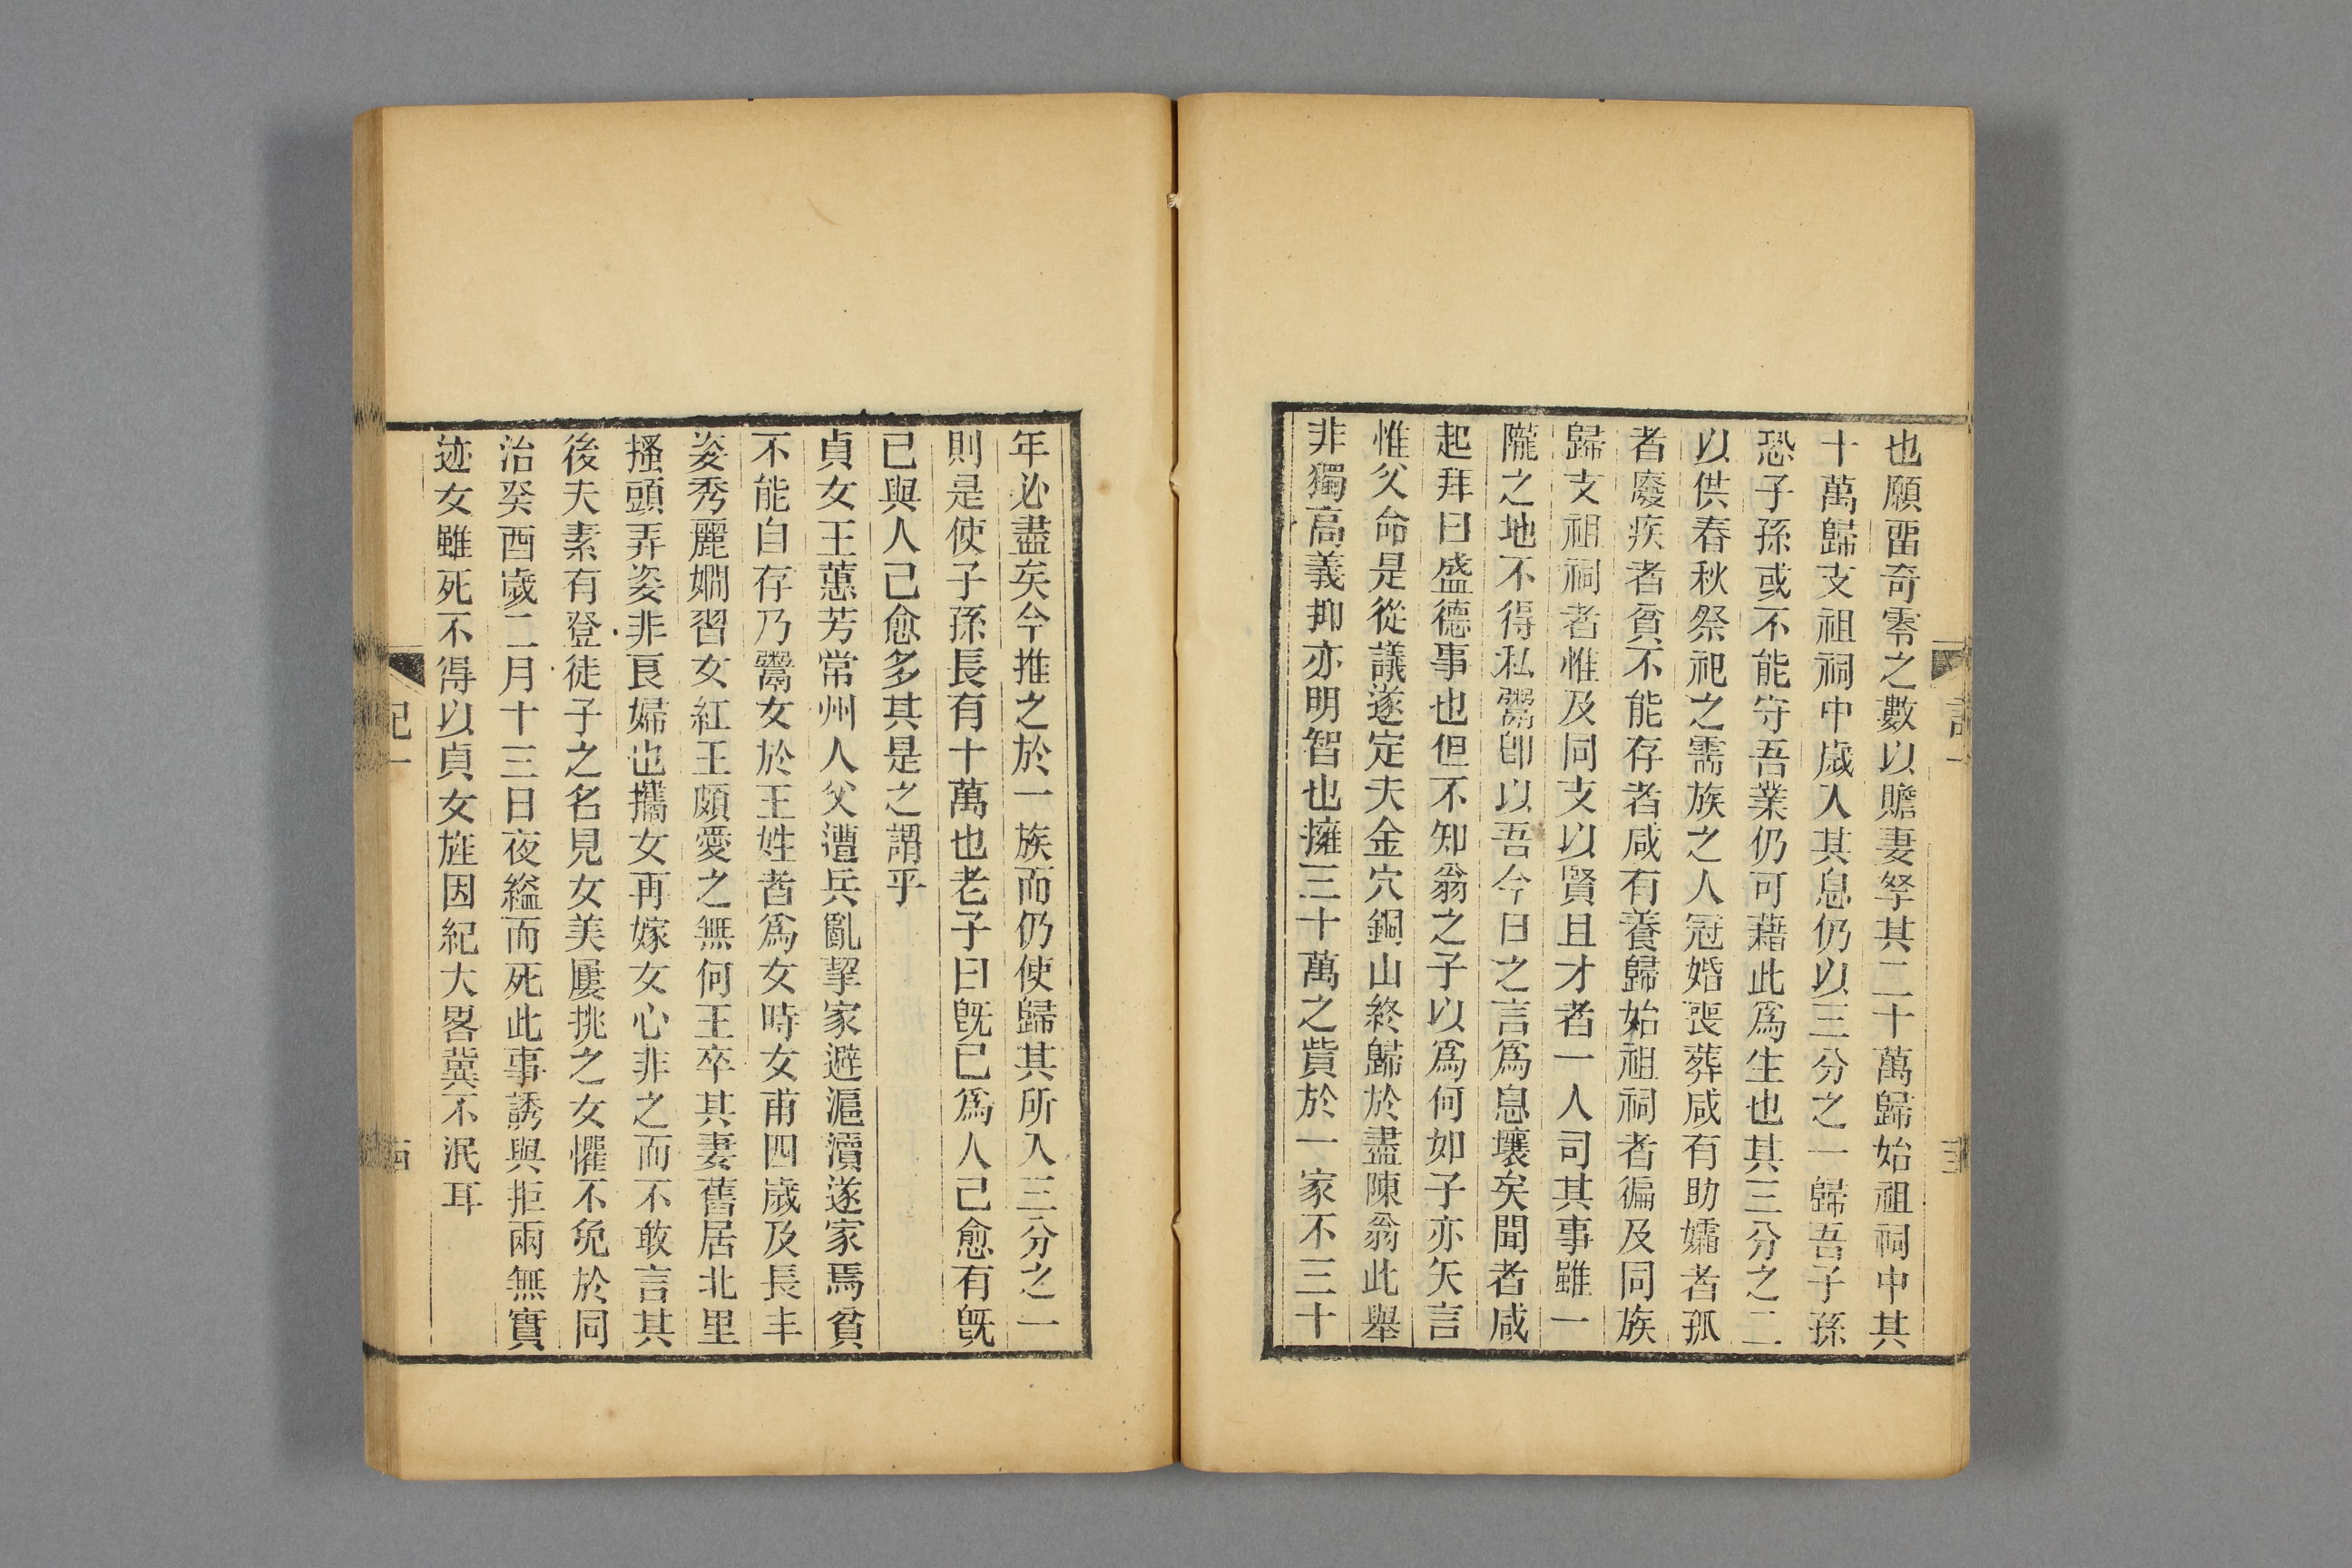 也願畱奇零之數以贍妻孥其二十萬歸始祖祠中其
十萬歸支祖祠中歲入其息仍以三分之一歸吾子孫
恐子孫或不能守吾業仍可藉此爲生也其三分之二
以供春秋祭祀之需族之人冠婚喪葬咸有助孀者孤
者廢疾者貧不能存者咸有養歸始祖祠者徧及同族
歸支祖祠者惟及同支以賢且才者一人司其事雖一
隴之地不得私鬻卽以吾今日之言爲息壤矣聞者咸
起拜曰盛德事也但不知翁之子以爲何如子亦矢言
惟父命是從議遂定夫金穴銅山終歸於盡陳翁此舉
非獨高義抑亦明智也擁三十萬之貲於一家不三十
年必盡矣今推之於一族而仍使歸其所入三分之一
則是使子孫長有十萬也老子曰旣已爲人己愈有旣
已與人己愈多其是之謂乎
貞女王蕙芳常州人父遭兵亂挈家避滬瀆遂家焉貧
不能自存乃鬻女於王姓者爲女時女甫四歲及長丰
姿秀麗嫺習女紅王頗愛之無何王卒其妻舊居北里
搔頭弄姿非良婦也攜女再嫁女心非之而不敢言其
後夫素有登徒子之名見女美屢挑之女懼不免於同
治癸酉歲二月十三日夜縊而死此事誘與拒兩無實
迹女雖死不得以貞女旌因紀大畧冀不泯耳